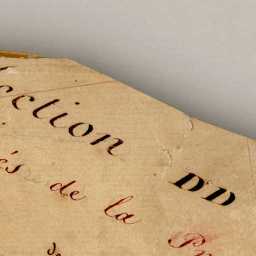 ection DD
és de la